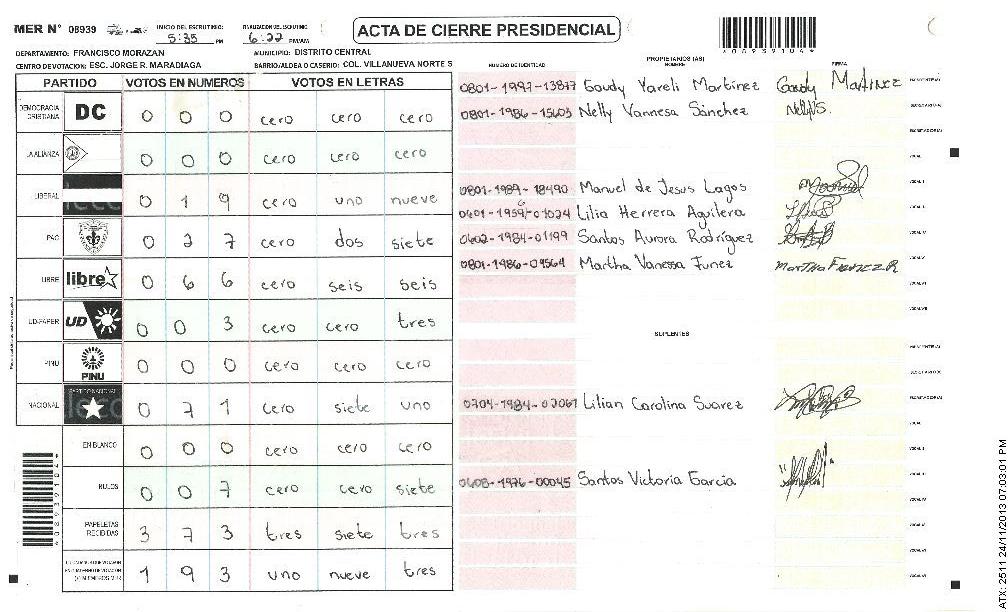 MER N° 08939 INICIO DEL ESCRUTINIO: 5:35 PM FINALIZACION DEL ESCRUTINIO: 6:22 PM/AM
ACTA DE CIERRE PRESIDENCIAL
DEPARTAMENTO: FRANCISCO MORAZAN MUNICIPIO: DISTRITO CENTRAL
CENTRO DE VOTACION: ESC. JORGE R. MARADIAGA BARRIO/ALDEA O CASERIO: COL. VILLANUEVA NORTE S
PARTIDO VOTOS EN NUMEROS VOTOS EN LETRAS
DEMOCRACIA CRISTIANA DC 0 0 0 cero cero cero
LA ALIANZA 0 0 0 cero cero cero
LIBERAL 0 1 9 cero uno nueve
PAC 0 2 7 cero dos siete
LIBRE libre 0 6 6 cero seis seis
UD-FAPER UD 0 0 3 cero cero tres
PINU PINU 0 0 0 cero cero cero
NACIONAL PARTIDO NACIONAL 0 7 1 cero siete uno
EN BLANCO 0 0 0 cero cero cero
NULOS 0 0 7 cero cero siete
PAPELETAS RECIBIDAS 3 7 3 tres siete tres
1 9 3 uno nueve tres
NUMERO DE IDENTIDAD PROPIETARIOS (AS) NOMBRE FIRMA
0801-1997-13877 Gaudy Yareli Martinez Gaudy Martinez
0801-1986-15603 Nelly Vannesa Sánchez Nelly S.
0801-1989-18490 Manuel de Jesus Lagos
0601-1959-01024 Lilia Herrera Aguilera
0602-1984-01199 Santos Aurora Rodríguez
0801-1986-09564 Martha Vanessa Funez Martha Funez R
SUPLENTES
0704-1984-02067 Lilian Carolina Suarez
0608-1976-00045 Santos Victoria Garcia
ATX: 2511 24/11/2013 07:03:01 PM